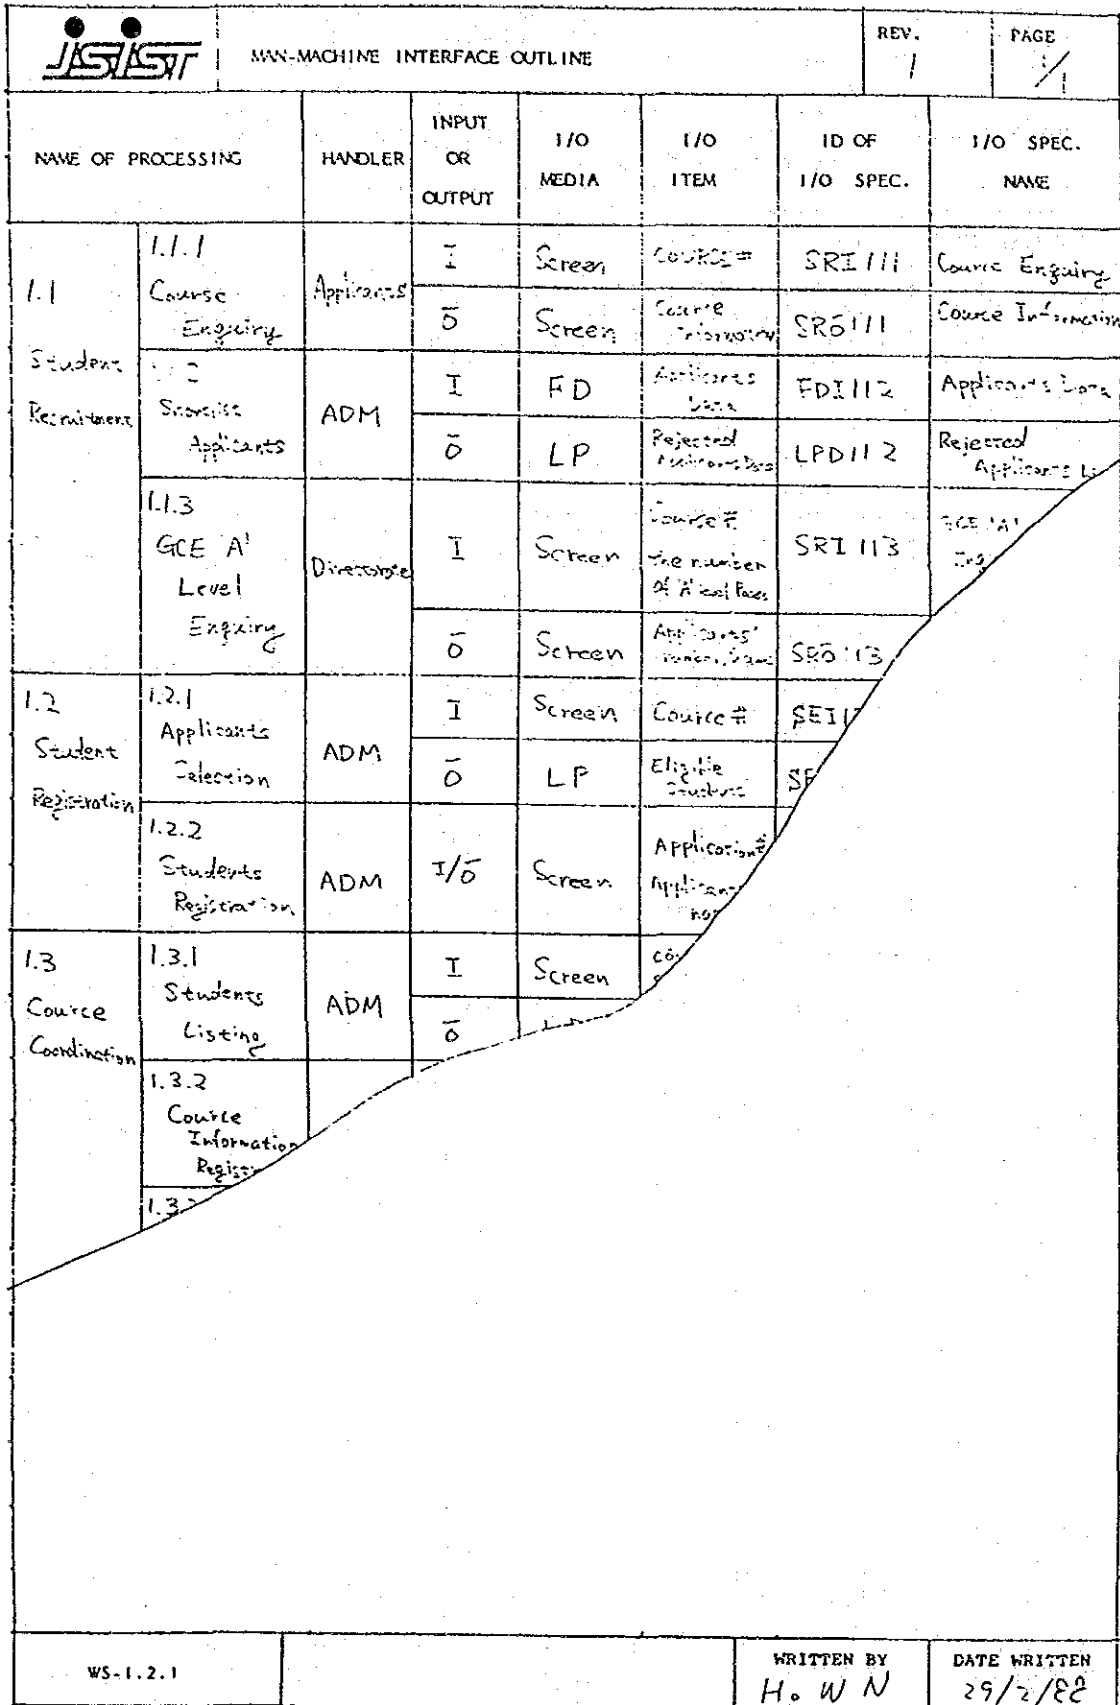 JSIST
MAN-MACHINE INTERFACE OUTLINE
REV.
1
PAGE
1/1
NAME OF PROCESSING
HANDLER
INPUT
OR
OUTPUT
I/O
MEDIA
I/O
ITEM
ID OF
I/O SPEC.
I/O SPEC.
NAME
1.1
Student
Recruitment
1.1.1
Course
Enquiry
Applicants
I
Screen
COURSE#
SRI111
Cource Enquiry
Ō
Screen
Information
SRŌ111
Cource Information
Applicants
ADM
I
FD
Applicants
Data
FDI112
Applicants Data
Ō
LP
Rejected
LPD112
Rejected
Applicants Li
1.1.3
GCE 'A'
Level
Enquiry
Directorate
I
Screen
Course #
The number
SRI113
GCE 'A'
Ō
Screen
Applicants'
SRŌ113
1.2
Student
Registration
1.2.1
Applicants
Selection
ADM
I
Screen
Cource #
SEI1
Ō
LP
Eligible
Students
1.2.2
Students
Registration
ADM
I/Ō
Screen
Application#
Applican
1.3
Cource
Coordination
1.3.1
Students
Listing
ADM
I
Screen
Ō
1.3.2
Cource
Information
Regist
1.3.
WS-1.2.1
WRITTEN BY
H. W N
DATE WRITTEN
29/2/88